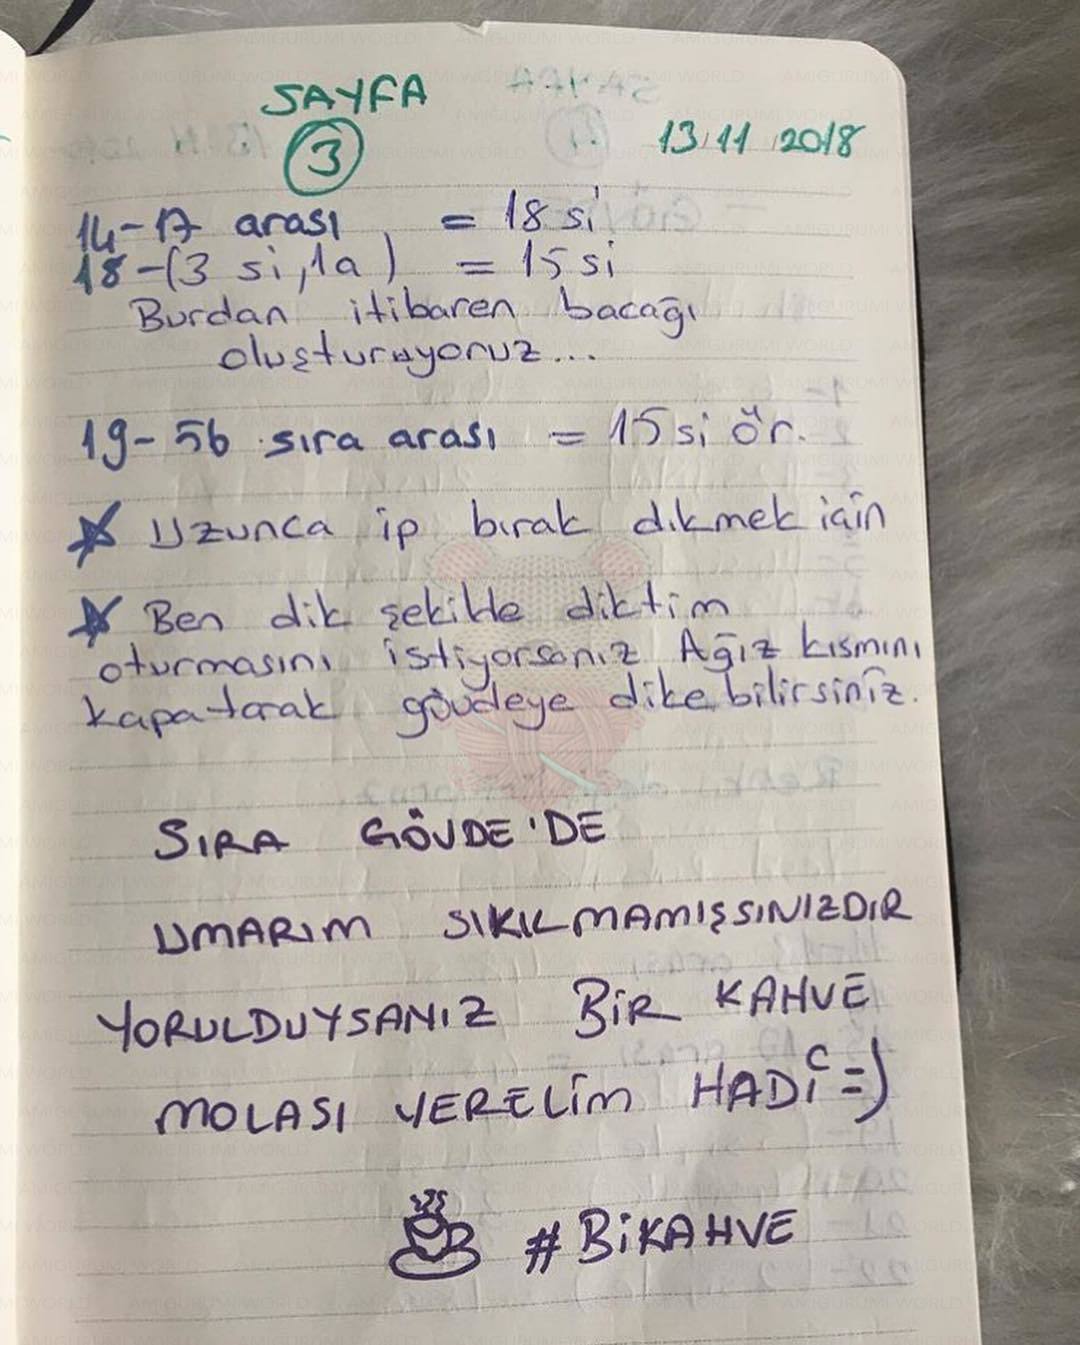 SAYFA
3
13.11.2018
14-17 arası = 18 si
18-(3 si, 1a) = 15 si
Burdan itibaren bacağı
oluşturuyoruz...
19-56 sıra arası = 15 si ör.
Uzunca ip bırak dikmek için
Ben dik şekilde diktim
oturmasını istiyorsanız Ağız kısmını
kapatarak gövdeye dikebilirsiniz.
SIRA GÖVDE'DE
UMARIM SIKILMAMIŞSINIZDIR
YORULDUYSANIZ BİR KAHVE
MOLASI VERELİM HADİ =)
#BİKAHVE
AMIGURUMI WORLD